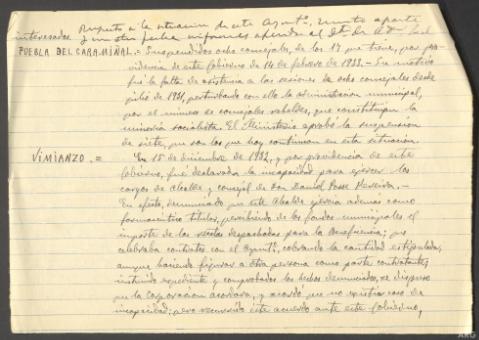 Respecto a la situación de este Ayuntº, remito aparte
interesados y en otra fecha informes
PUEBLA DEL CARAMIÑAL.= Suspendidos ocho concejales, de los 17 que tiene, por pro-
videncia de este Gobierno de 14 de febrero de 1933.- Su motivo
fué la falta de asistencia a las sesiones de ocho concejales desde
julio de 1931, perturbando con ello la administración municipal,
por el número de concejales rebeldes, que constituían la
minoría socialista. El Ministerio aprobó la suspensión
de siete, que son los que hoy continúan en esta situación.
VIMIANZO.= En 15 de diciembre de 1932, y por providencia de este
Gobierno, fué declarada la incapacidad para ejercer los
cargos de Alcalde y concejal de Don Daniel Posse
En efecto, denunciado que este Alcalde ejercía además como
farmacéutico titular, percibiendo de los fondos municipales el
importe de las recetas despachadas para la Beneficencia; que
celebraba contratos con el Ayuntº, cobrando la cantidad estipulada,
aunque haciendo figurar a otra persona como parte contratante;
instruido expediente y comprobados los hechos denunciados, se dispuso
que la Corporación acordara, y acordó que no existía caso de
incapacidad; pero recurrido este acuerdo ante este Gobierno,
ARG